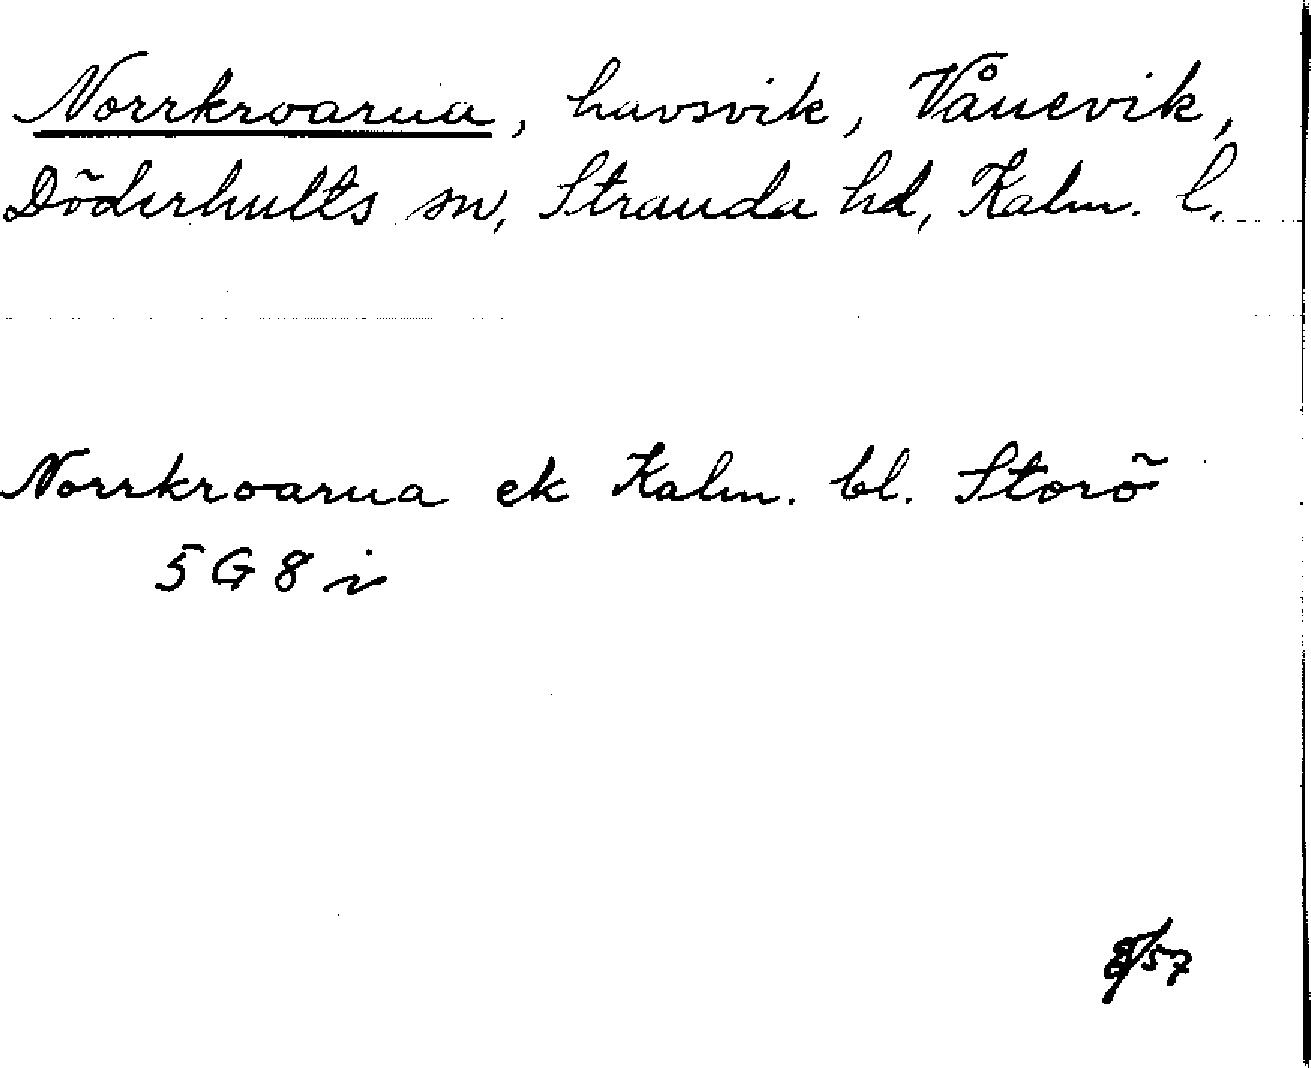 Norrkroarna, havsvik, Vånevik,
Döderhults sn, Stranda hd, Kalm. l.
Norrkroarna ek Kalm. bl. Storö
5 G 8 i
57